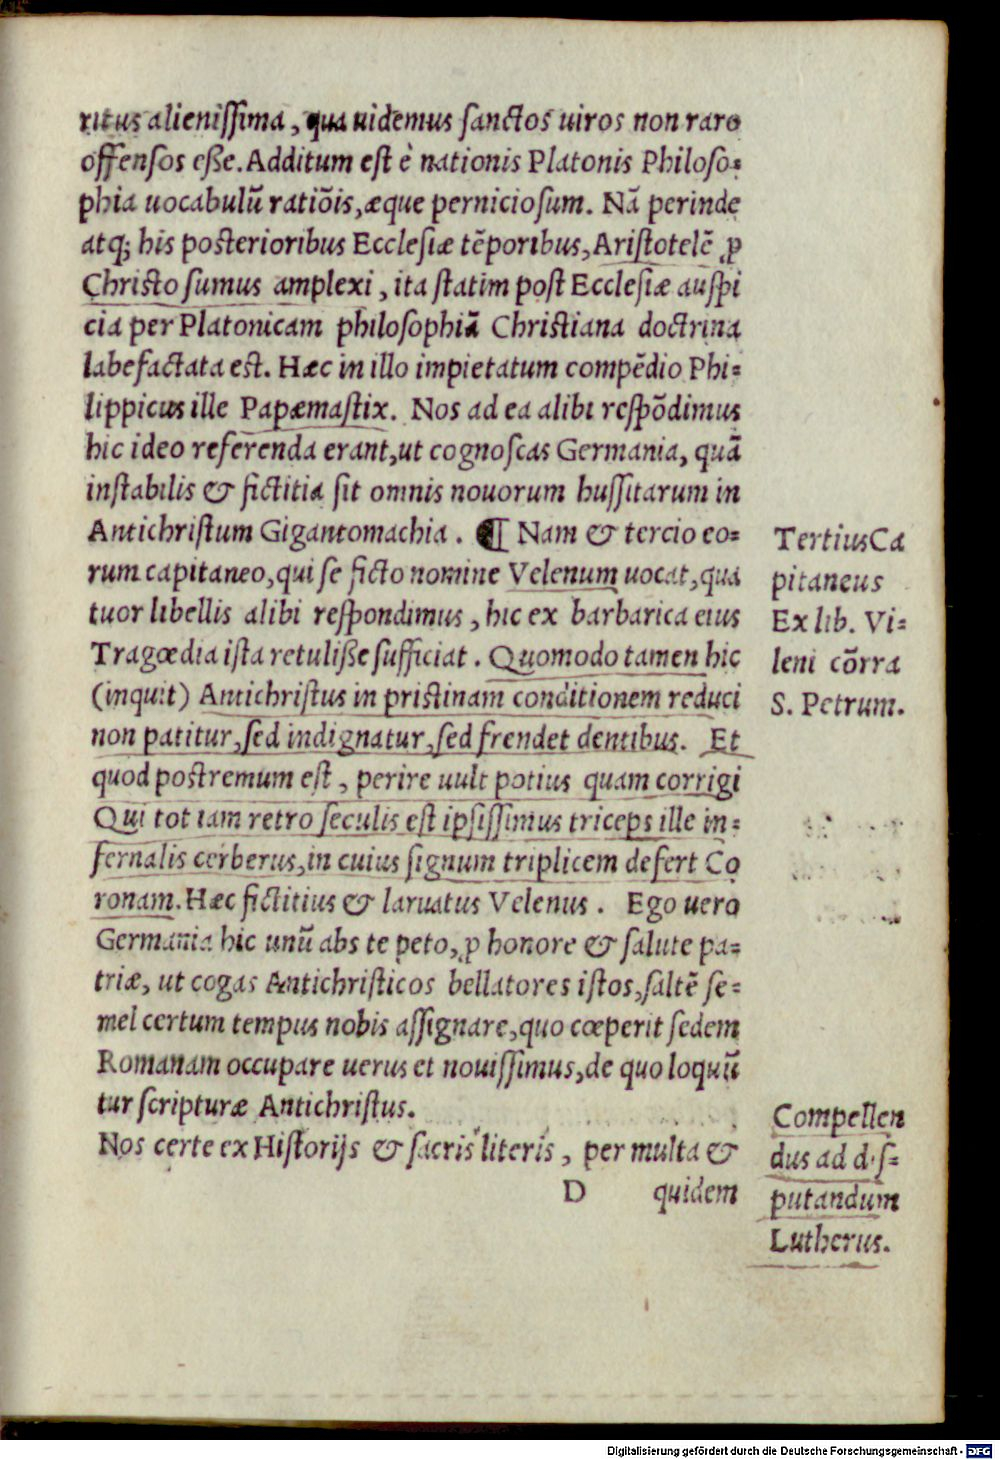 ritus alienissima, qua uidemus sanctos uiros non raro
offensos eſſe. Additum est è nationis Platonis Philoso-
phia uocabulũ ratiõis, æque perniciosum. Nã perinde
atq; his posterioribus Ecclesiæ tẽporibus, Aristotelẽ ꝓ
Christo sumus amplexi, ita statim post Ecclesiæ auspi
cia per Platonicam philosophiã Christiana doctrina
labefactata est. Hæc in illo impietatum compẽdio Phi-
lippicus ille Papæmastix. Nos ad ea alibi respõdimus
hic ideo referenda erant, ut cognoscas Germania, quã
instabilis & fictitia sit omnis nouorum hussitarum in
Antichristum Gigantomachia. ¶ Nam & tercio eo-
rum capitaneo, qui se ficto nomine Velenum uocat, qua
tuor libellis alibi respondimus, hic ex barbarica eius
Tragœdia ista retuliße sufficiat. Quomodo tamen hic
(inquit) Antichristus in pristinam conditionem reduci
non patitur, sed indignatur, sed frendet dentibus. Et
quod postremum est, perire uult potius quam corrigi
Qui tot iam retro seculis est ipsissimus triceps ille in-
fernalis cerberus, in cuius signum triplicem defert Co
ronam. Hæc fictitius & laruatus Velenus. Ego uero
Germania hic unũ abs te peto, ꝓ honore & salute pa-
triæ, ut cogas Antichristicos bellatores istos, saltẽ se-
mel certum tempus nobis assignare, quo cœperit sedem
Romanam occupare uerus et nouissimus, de quo loquũ
tur scripturæ Antichristus.
Nos certe ex Historijs & sacris literis, per multa &
D quidem
Tertius Ca
pitaneus
Ex lib. Vi-
leni cõtra
S. Petrum.
Compellen
dus ad dis-
putandum
Lutherus.
Digitalisierung gefördert durch die Deutsche Forschungsgemeinschaft - DFG